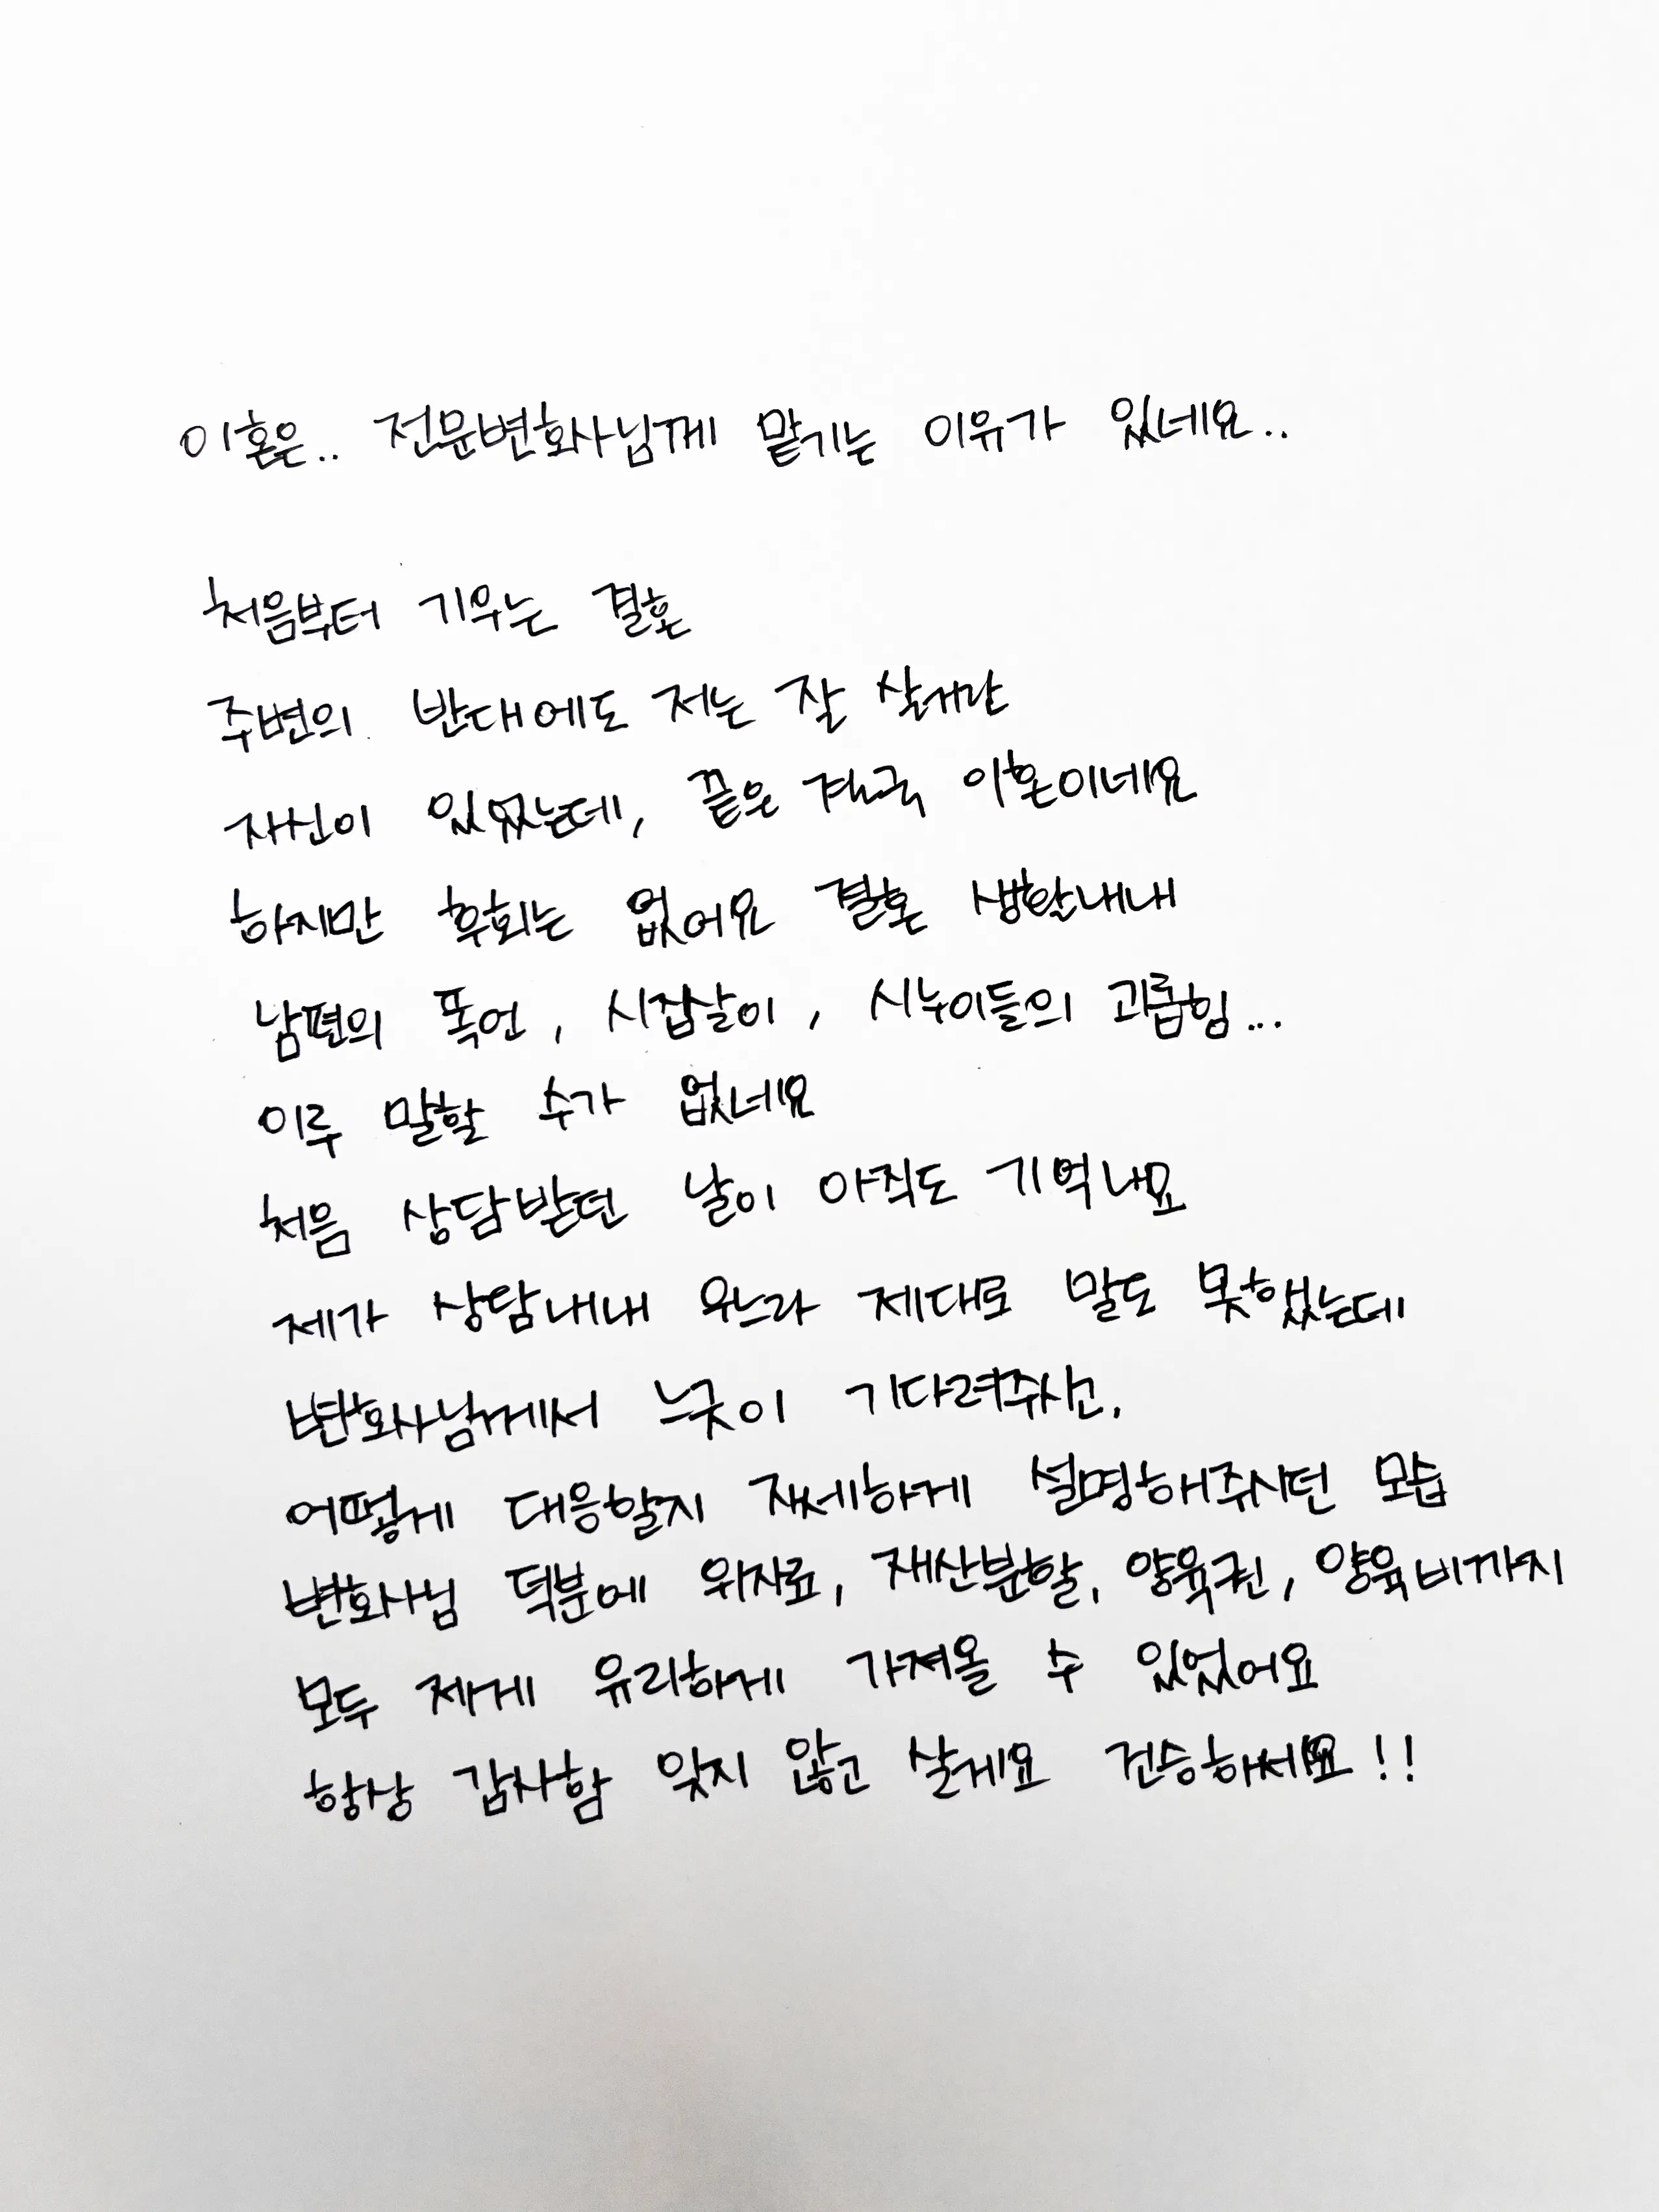 이혼은.. 전문변호사님께 맡기는 이유가 있네요..
처음부터 기우는 결혼
주변의 반대에도 저는 잘 살거란
자신이 있었는데, 끝은 결국 이혼이네요
하지만 후회는 없어요 결혼 생활내내
남편의 폭언, 시집살이, 시누이들의 괴롭힘...
이루 말할 수가 없네요
처음 상담받던 날이 아직도 기억나요
제가 상담내내 우느라 제대로 말도 못했는데
변호사님께서 느긋이 기다려주시고,
어떻게 대응할지 자세하게 설명해주시던 모습
변호사님 덕분에 위자료, 재산분할, 양육권, 양육비까지
모두 제게 유리하게 가져올 수 있었어요
항상 감사함 잊지 않고 살게요 건승하세요!!